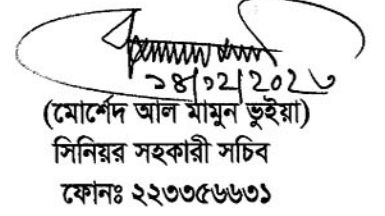 (মোর্শেদ আল মামুন ভুইয়া)
সিনিয়র সহকারী সচিব
ফোনঃ ২২৩৩৫৬৬৩১